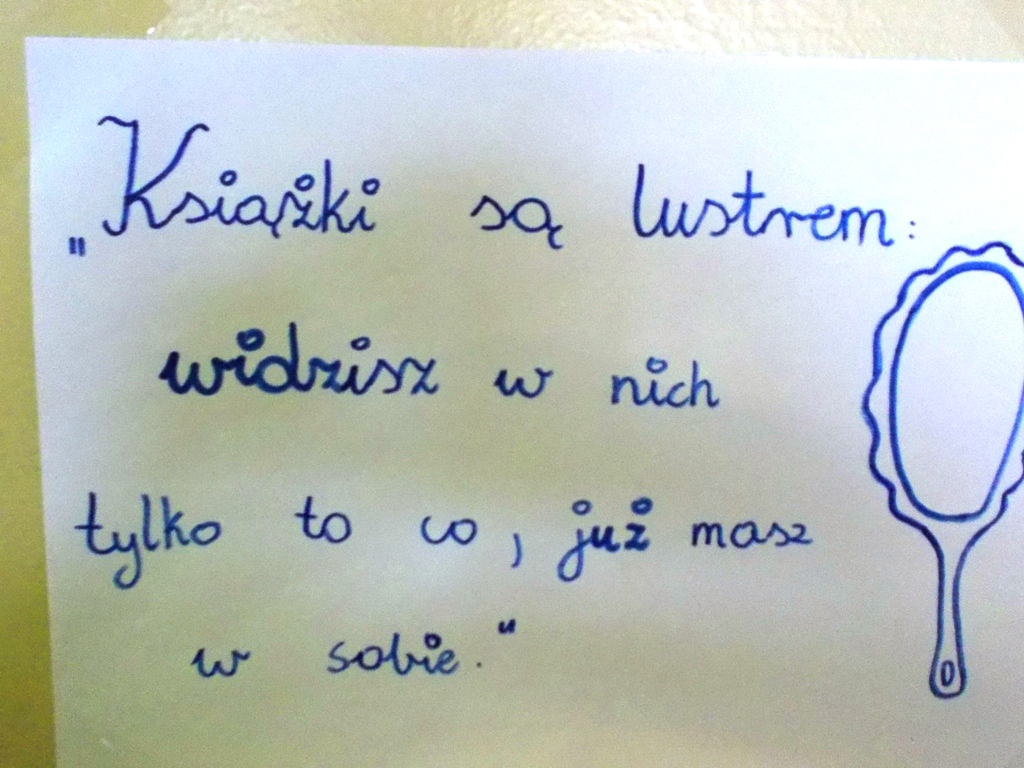 „Książki są lustrem:
widzisz w nich
tylko to co, już masz
w sobie."